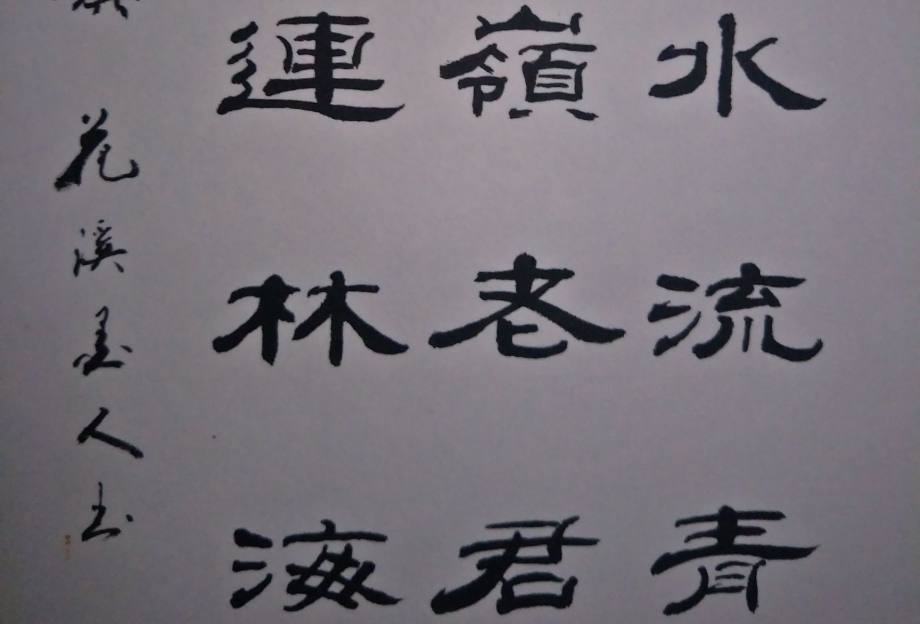 水流青
嶺老君
連林海
花溪墨人书